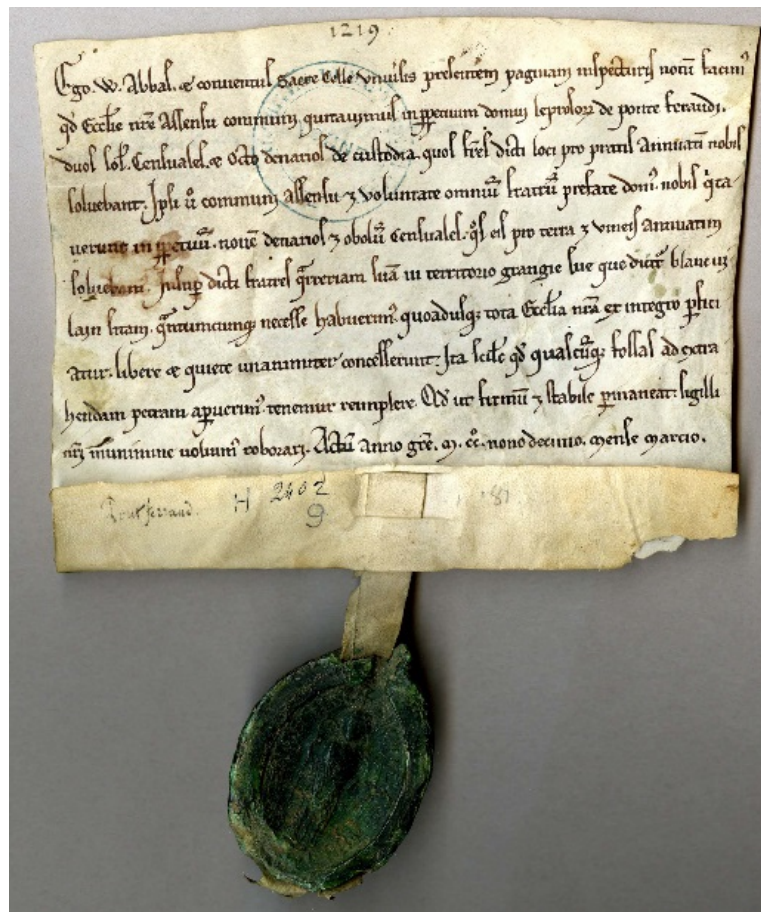 1219
Ego. W. Abbas. et conventus Sacre Celle universis presentem paginam inspecturis notum facim⁹
qd̄ Eccl̄ie nr̄e Assensu communi, quitavimus in p̱petuum domui leprosoꝝ de ponte ferandi.
duos sol̄. Censuales. et Octo denarios de custodia. quos fr̄es dicti loci pro pratis Annuatī nobis
solvebant. Ipsi ū communi assensu ⁊ voluntate omniū fratrū prefate dom⁹. nobis q̄ta
verunt in p̱petuū. novē denarios ⁊ obolū Censuales. q̊s eis pro terra ⁊ vineis annuatim
solvebam⁹. Insup̱ dicti fratres q̄rreriam suā in territorio grangie sue que dicit᷑
sitam. q̄ntumcunq; necesse habuerim⁹. quoadusq; tota Eccl̄ia nr̄a ex integro p̱fici
atur. libere et quiete unanimiter concesserunt. Ita scil̄c qd̄ qualescūq; fossas ad extra
hendam petram ap̱uerim⁹. tenemur reimplere. Qd̄ ut firmū ⁊ stabile p̱maneat. sigilli
nr̄i munimine voluim⁹ roborari. Actū anno gr̄e. M. cc̊. nonodecimo. Mense Marcio.
Pontferrand. H 2402
9